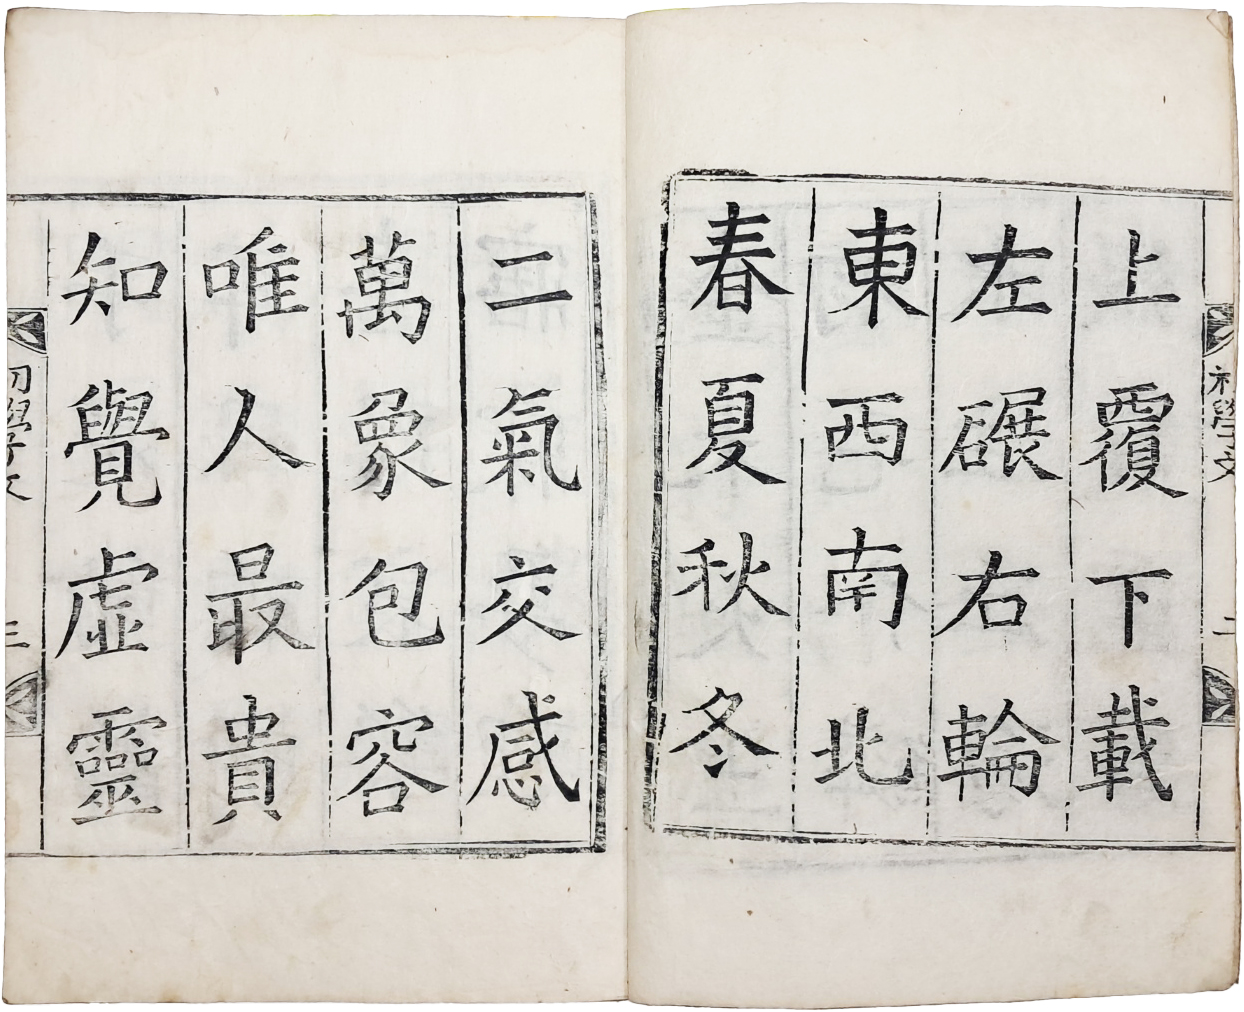 上覆下載
左碾右輪
東西南北
春夏秋冬
二氣交感
萬象包容
唯人最貴
知覺虛靈
初學文
三